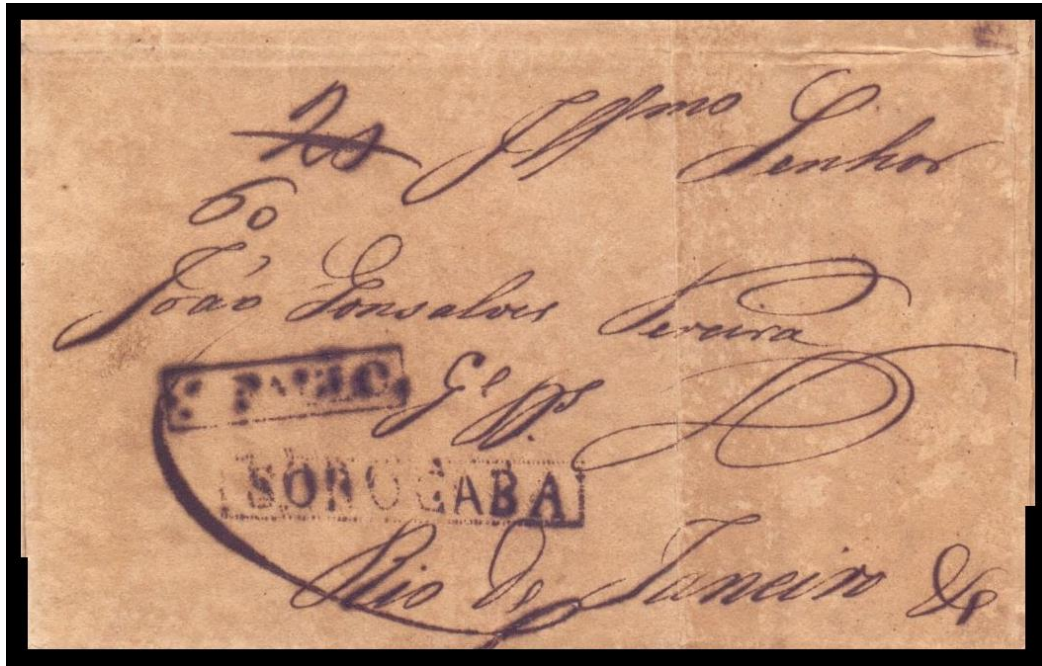 Illmo Senhor
60
João Gonsalves Pereira
S. PAULO.
Ge. Ps.
SOROCABA
Rio de Janeiro &